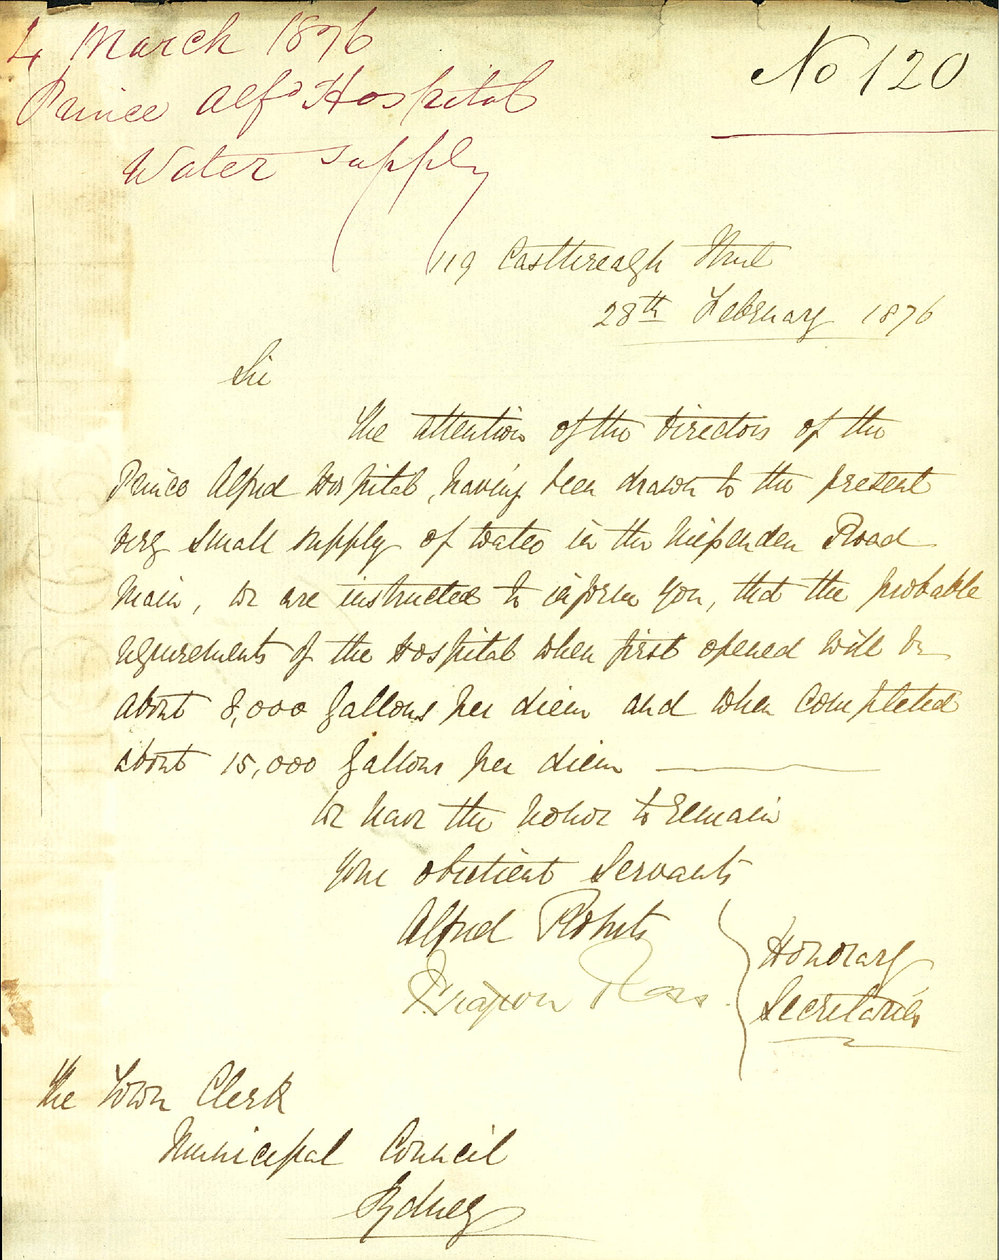 4 March 1876
No 120
Prince Alfd Hospital
Water Supply
119 Castlereagh Street
28th February 1876
Sir
The attention of the Directors of the
Prince Alfred Hospital, having been drawn to the present
very small supply of water in the Missenden Road
Main, we are instructed to inform you, that the probable
requirements of the Hospital when first opened will be
about 8,000 gallons per diem and when completed
about 15,000 gallons per diem
We have the honor to remain
Your obedient Servants
Alfred Roberts
Ross
Honorary
Secretaries
The Town Clerk
Municipal Council
Sydney